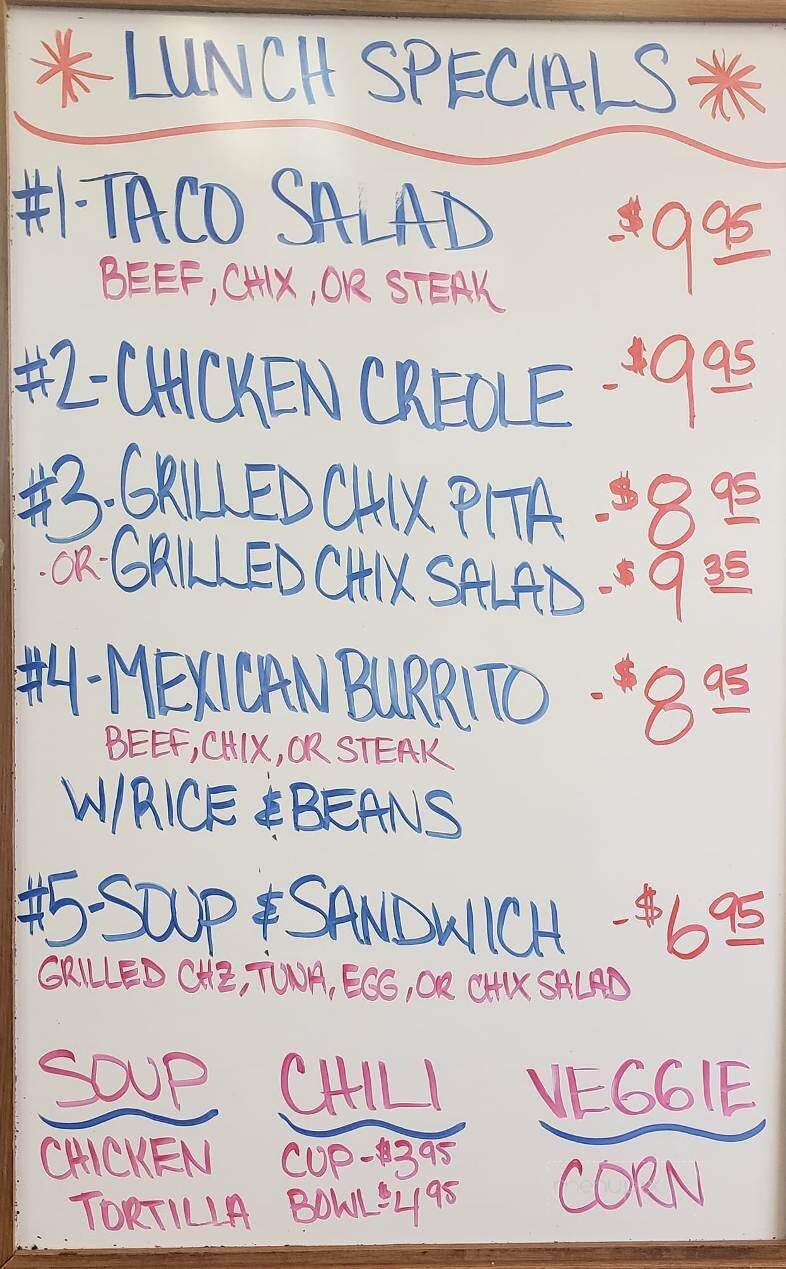 * LUNCH SPECIALS *
#1-TACO SALAD -$9 95
BEEF, CHIX, OR STEAK
#2-CHICKEN CREOLE -$9 95
#3-GRILLED CHIX PITA -$8 95
-OR-GRILLED CHIX SALAD -$9 35
#4-MEXICAN BURRITO -$8 95
BEEF, CHIX, OR STEAK
W/RICE & BEANS
#5-SOUP & SANDWICH -$6 95
GRILLED CHZ, TUNA, EGG, OR CHIX SALAD
SOUP CHILI VEGGIE
CHICKEN CUP-$3 95 CORN
TORTILLA BOWL $4 95